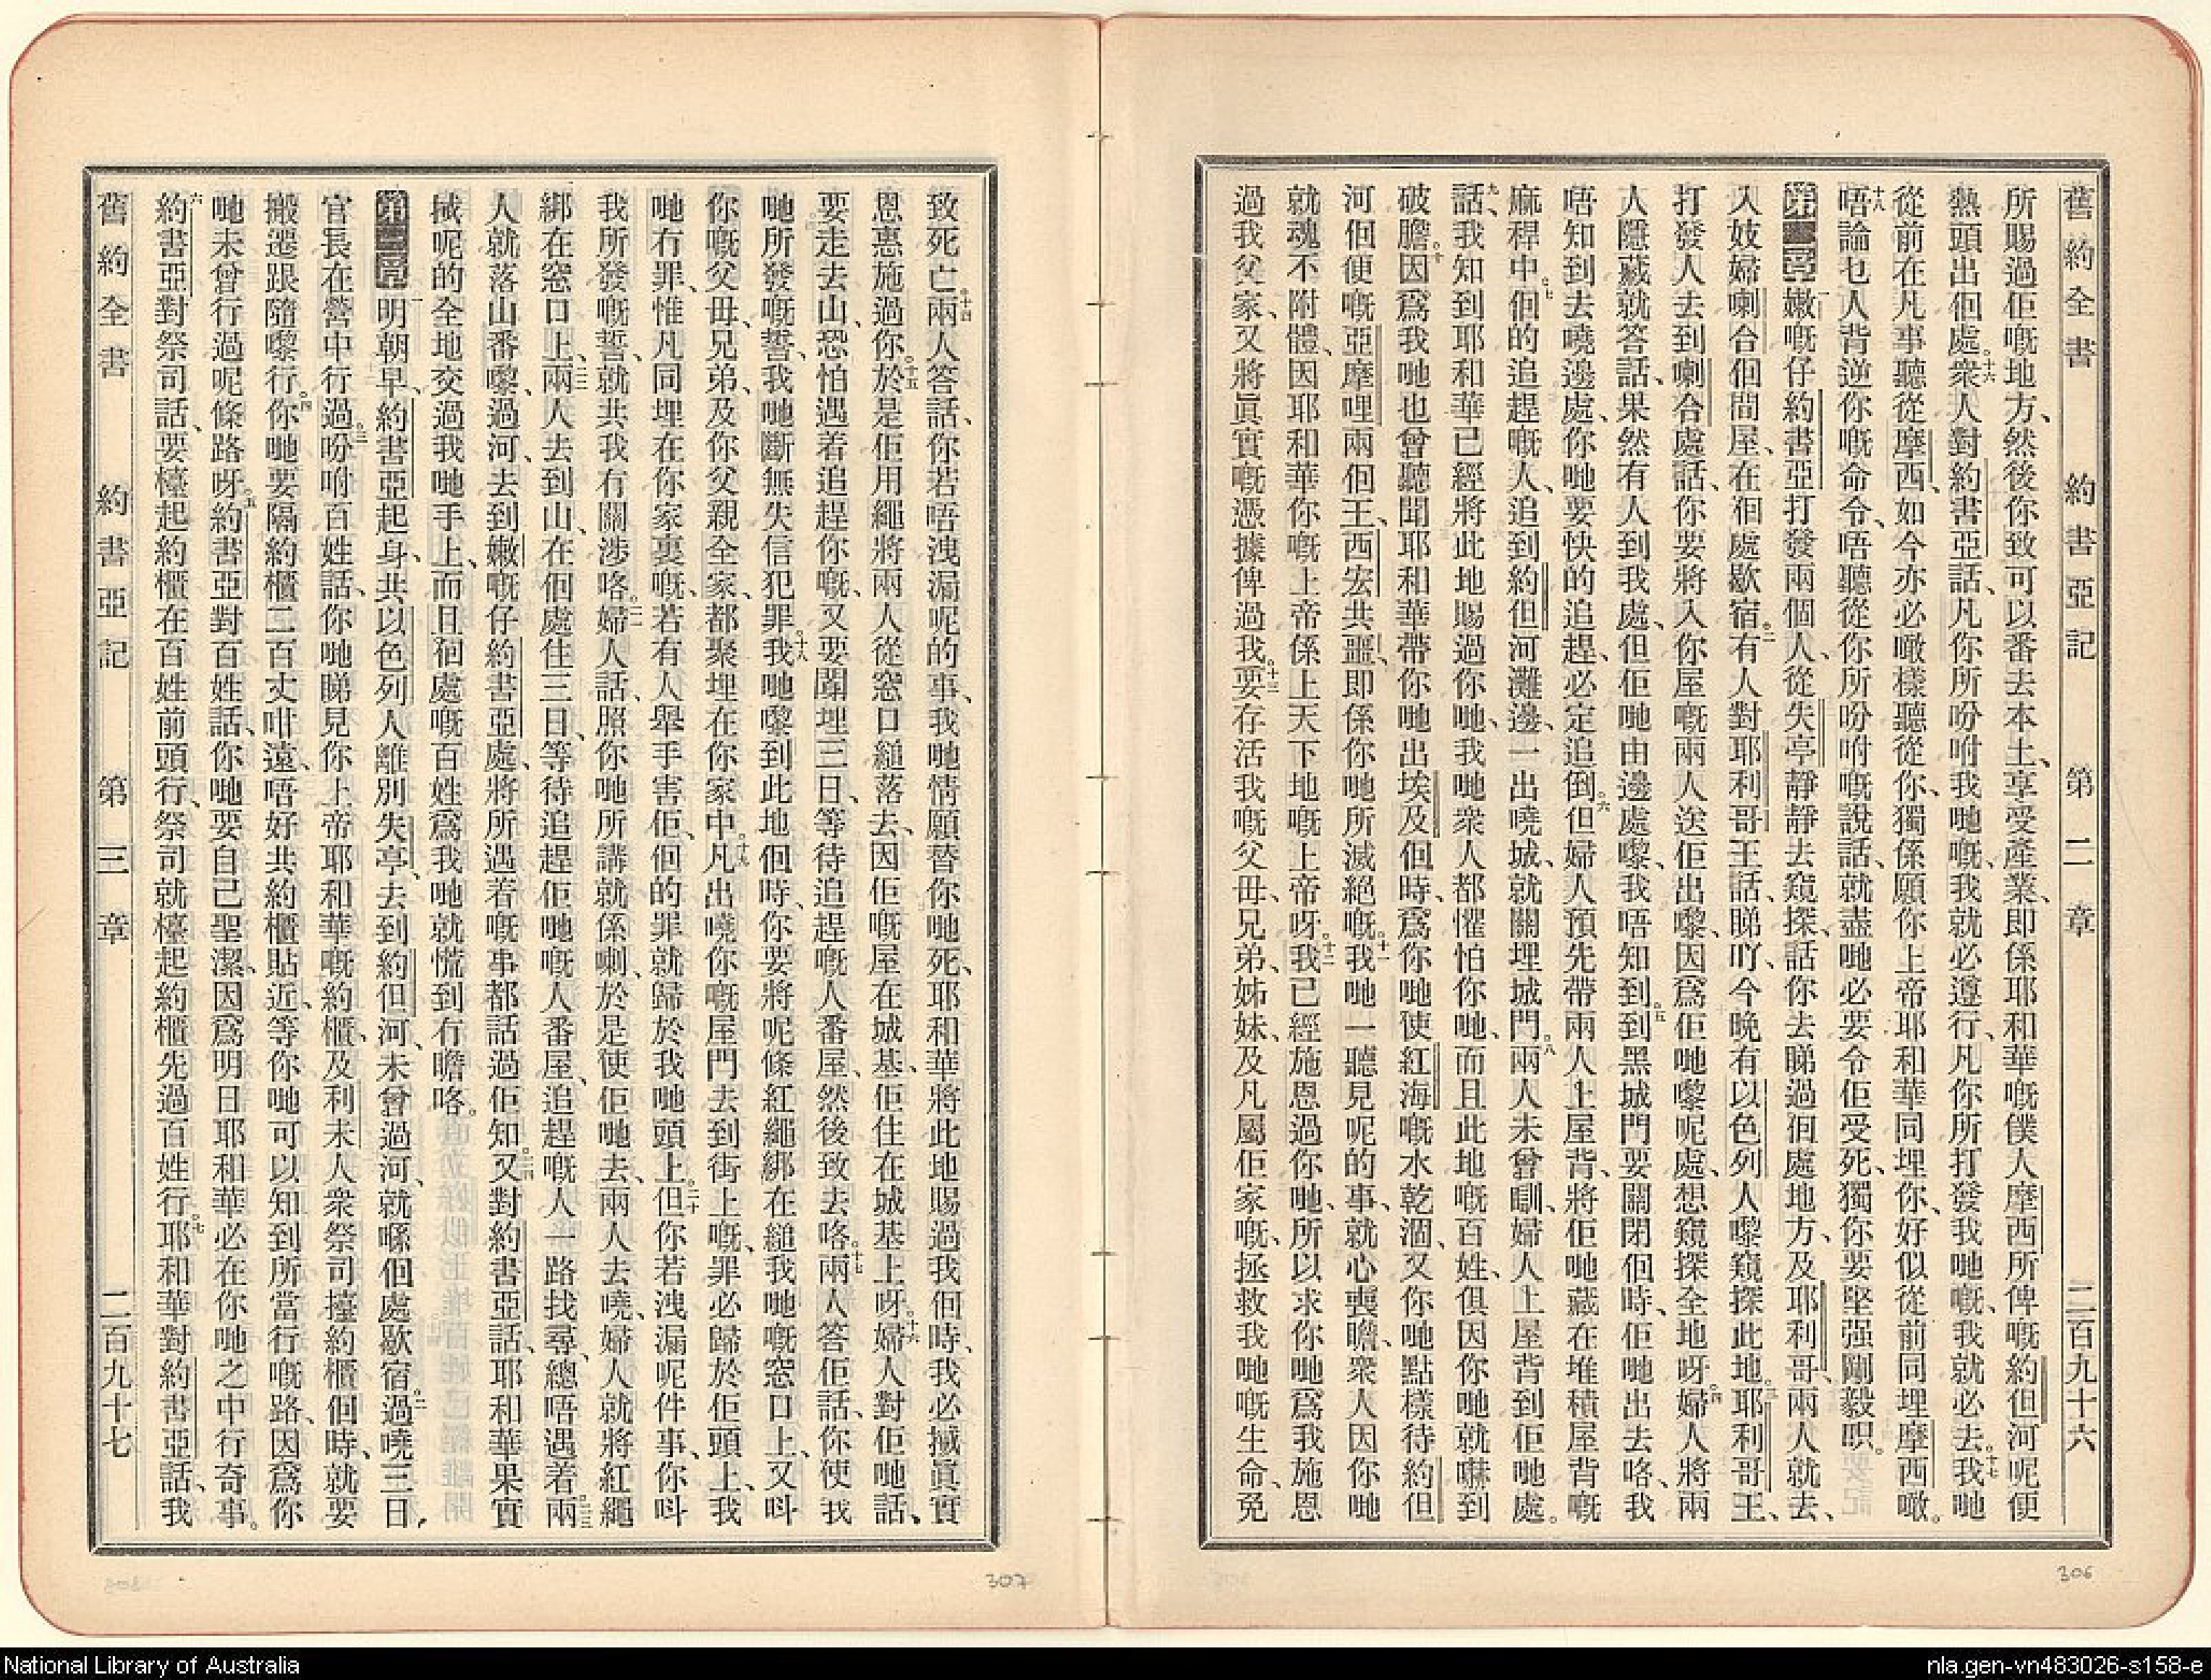 舊約全書 約書亞記 第二章 二百九十六
所賜過佢嘅地方、然後你致可以番去本土、享受產業、即係耶和華嘅僕人摩西所俾嘅約但河呢便
熱頭出個處。十六衆人對約書亞話、凡你所吩咐我哋嘅、我就必遵行、凡你所打發我哋嘅、我就必去。十七我哋
從前在凡事聽從摩西、如今亦必噉樣聽從你、獨係願你上帝耶和華同埋你、好似從前同埋摩西噉。
十八唔論乜人背逆你嘅命令、唔聽從你所吩咐嘅說話、就盡哋必要令佢受死、獨你要堅强剛毅呮。
第二章 一嫩嘅仔約書亞打發兩個人、從失亭靜靜去窺探、話你去睇過個處地方、及耶利哥、兩人就去、
入妓婦喇合個間屋、在個處歇宿。二有人對耶利哥王話、睇吖、今晚有以色列人嚟窺探此地。三耶利哥王、
打發人去到喇合處話、你要將入你屋嘅兩人送佢出嚟、因爲佢哋嚟呢處、想窺探全地呀。四婦人將兩
人隱藏、就答話、果然有人到我處、但佢哋由邊處嚟、我唔知到。五到黑城門要關閉個時、佢哋出去咯、我
唔知到去嘵邊處、你哋要快的追趕、必定追倒。六但婦人預先帶兩人上屋背、將佢哋藏在堆積屋背嘅
麻稈中。七個的追趕嘅人、追到約但河灘邊、一出嘵城、就關埋城門。八兩人未曾瞓、婦人上屋背到佢哋處。
九話、我知到耶和華已經將此地賜過你哋、我哋衆人都懼怕你哋、而且此地嘅百姓、俱因你哋就嚇到
破膽。十因爲我哋也曾聽聞耶和華帶你哋出埃及個時、爲你哋使紅海嘅水乾涸、又你哋點樣待約但
河個便嘅亞摩哩兩個王、西宏共噩、即係你哋所滅絕嘅。十一我哋一聽見呢的事、就心喪膽、衆人因你哋
就魂不附體、因耶和華你嘅上帝係上天下地嘅上帝呀。十二我已經施恩過你哋、所以求你哋爲我施恩
過我父家、又將眞實嘅憑據俾過我。十三要存活我嘅父母、兄弟、姊妹、及凡屬佢家嘅、拯救我哋嘅生命、免
306
致死亡。十四兩人答話、你若唔洩漏呢的事、我哋情願替你哋死、耶和華將此地賜過我個時、我必搣眞實
恩惠施過你。十五於是佢用繩將兩人從窓口縋落去、因佢嘅屋在城基、佢住在城基上呀。十六婦人對佢哋話、
要走去山、恐怕遇着追趕你嘅、又要閗埋三日、等待追趕嘅人番屋、然後致去咯。十七兩人答佢話、你使我
哋所發嘅誓、我哋斷無失信犯罪。十八我哋嚟到此地個時、你要將呢條紅繩綁在縋我哋嘅窓口上、又呌
你嘅父母、兄弟、及你父親全家、都聚埋在你家中。十九凡出嘵你嘅屋門去到街上嘅、罪必歸於佢頭上、我
哋冇罪、惟凡同埋在你家裏嘅、若有人舉手害佢、個的罪就歸於我哋頭上。二十但你若洩漏呢件事、你呌
我所發嘅誓、就共我有關涉咯。二一婦人話、照你哋所講就係喇、於是使佢哋去、兩人去嘵、婦人就將紅繩
綁在窓口上、二二兩人去到山、在個處住三日、等待追趕佢哋嘅人番屋、追趕嘅人一路找尋、總唔遇着。二三兩
人就落山番嚟、過河、去到嫩嘅仔約書亞處、將所遇着嘅事都話過佢知。二四又對約書亞話、耶和華果實
搣呢的全地交過我哋手上、而且個處嘅百姓爲我哋就慌到冇膽咯。
第三章 一明朝早、約書亞起身、共以色列人離別失亭、去到約但河、未曾過河、就喺個處歇宿。二過嘵三日、
官長在營中行過。三吩咐百姓話、你哋睇見你上帝耶和華嘅約櫃、及利未人衆祭司擡約櫃個時、就要
搬遷跟隨嚟行。四你哋要隔約櫃二百丈咁遠、唔好共約櫃貼近、等你哋可以知到所當行嘅路、因爲你
哋未曾行過呢條路呀。五約書亞對百姓話、你哋要自己聖潔、因爲明日耶和華必在你哋之中行奇事。
六約書亞對祭司話、要擡起約櫃在百姓前頭行、祭司就擡起約櫃先過百姓行。七耶和華對約書亞話、我
舊約全書 約書亞記 第三章 二百九十七
307
National Library of Australia
nla.gen-vn483026-s158-e